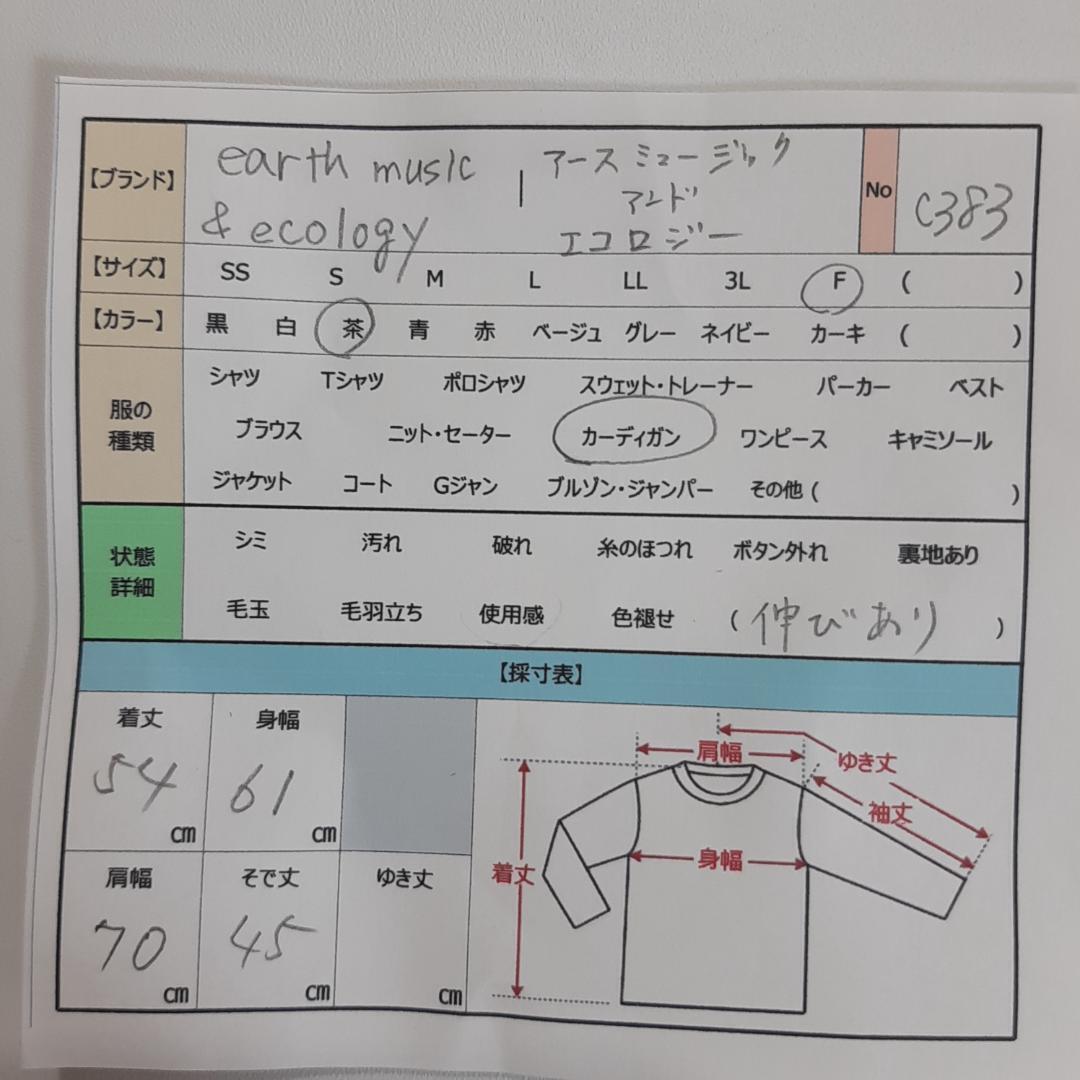 【ブランド】 earth music & ecology | アース ミュージック アンド エコロジー No C383
【サイズ】 SS S M L LL 3L F ( )
【カラー】 黒 白 茶 青 赤 ベージュ グレー ネイビー カーキ ( )
服の種類
シャツ Tシャツ ポロシャツ スウェット・トレーナー パーカー ベスト
ブラウス ニット・セーター カーディガン ワンピース キャミソール
ジャケット コート Gジャン ブルゾン・ジャンパー その他 ( )
状態詳細
シミ 汚れ 破れ 糸のほつれ ボタン外れ 裏地あり
毛玉 毛羽立ち 使用感 色褪せ ( 伸びあり )
【採寸表】
着丈 身幅
54 cm 61 cm
肩幅 そで丈 ゆき丈
70 cm 45 cm cm
肩幅
ゆき丈
袖丈
身幅
着丈